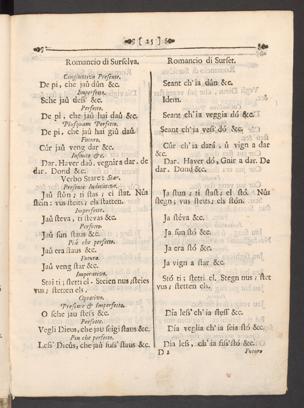 [ 25 ]
Romancio di Surselva.
Romancio di Surset.
Congiuntivo Presente.
De pi, che jaú dûn &c.
Imperfetto.
Sche jaú dess &c.
Perfetto.
De pi, che jaú hai daú &c.
Plusquam Perfetto.
De pi, che jaú hai giú daú
Futuro.
Cúr jaú veng dar &c.
Infinito &c.
Dar. Haver daú. vegnir a dar. de
dar. Dond &c.
Verbo Stare: Star.
Presente Indicativo.
Jaú stún; ti stas; el stat. Nús
stein: vus steits; els statten.
Imperfetto.
Jaú steva, ti stevas &c.
Perfetto.
Jaú sun staus &c.
Più che perfetto.
Jaú era staus &c.
Futuro.
Jaú veng star &c.
Imperativo.
Stai ti; stetti el. Steien nus; steies
vus; stetten els.
Optativo.
Presente & Imperfetto.
O sche jaú stess &c.
Perfetto.
Vegli Dieus, che jaú seigi staus &c.
Piu che perfetto.
Less' Dieús, che jaú fuss' staus &c.
Seant ch'ia dûn &c.
Idem.
Seant ch'ia veggia dó &c.
Seant ch'ja vess' dó &c.
Cúr ch'ia dará, ú vign a dar
&c.
Dar. Haver dó, Gnir a dar. De
dar. Dond &c.
Ja stun; ti stast; el stó. Nús
stegn; vus steits; els stón.
Ja stéva &c.
Ja sun stó &c.
Ja era stó &c.
Ja vign a star &c.
Stó ti; stetti el. Stegn nus; stet
vus; stetten els.
Dia less' ch'ia stess &c.
Dia veglia ch'ia seia stó &c.
Dia less, ch'ia fiss' stó &c.
D 2
Futuro